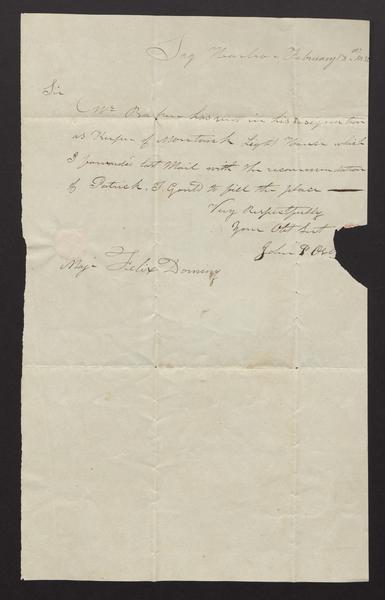 Sag Harbor February 18th
Sir
Mr has sent in his resignation
as Keeper of Montauk Light House which
I forwarded last Mail with the recommendation
of Patrick. T. Gould to fill the place —
Very Respectfully
Your Obt Servt
John P Os
Majr Felix Dominy